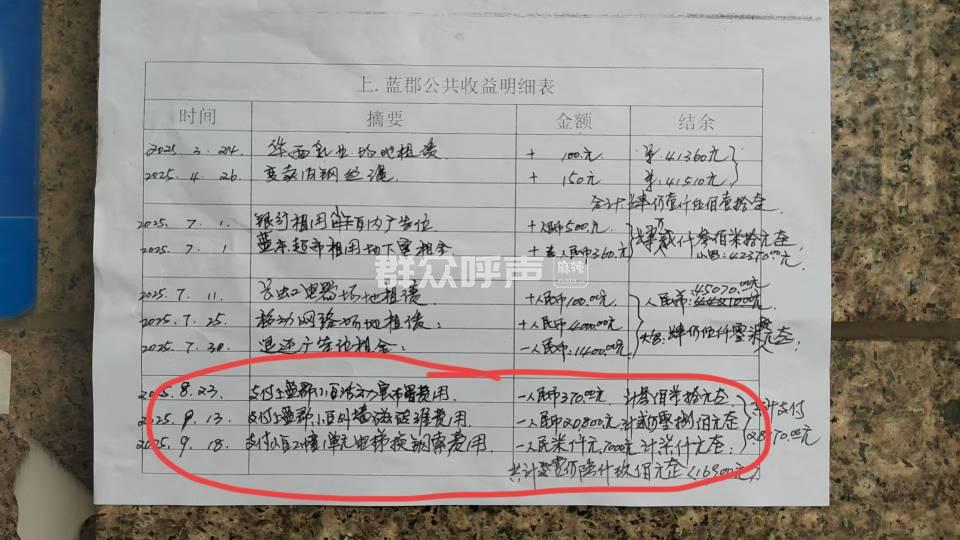 上.蓝郡公共收益明细表
时间 摘要 金额 结余
2025.3.24. 华西乳业场地租凭 + 100.元 计:41360元
2025.4.26. 变卖旧钢丝绳 + 150元 计:41510元
合计:肆仟壹仟伍佰壹拾元
2025.7.1. 银行租用 内广告位 +人民币500.元
2025.7.1 蓝东超市租用地下室租金 + 人民币360元 仟叁佰柒拾元在
小写:42370.00元
群众呼声 麻辣
45070.00元
2025.7.11. 电器场地租凭 +人民币100.00元 人民币:
2025.7.25. 移动网络场地租凭: +人民币4000.00元 大写:肆仟伍仟零柒拾元在
2025.7.30. 退还广告位租金: -人民币:1400.00元
2025.8.23. 支付上蓝郡小区活动室布置费用 -人民币370.00元 计叁佰柒拾元在
2025.9.13. 支付上蓝郡小区外墙瓷砖维费用 -人民币20800元 计贰万零捌佰元在 共计支付
2025.9.18. 支付小区2幢单元电梯换钢索费用 -人民柒仟元7000元 计柒仟元在: 28170.00元
共计壹万陆仟玖佰元在(16900元)